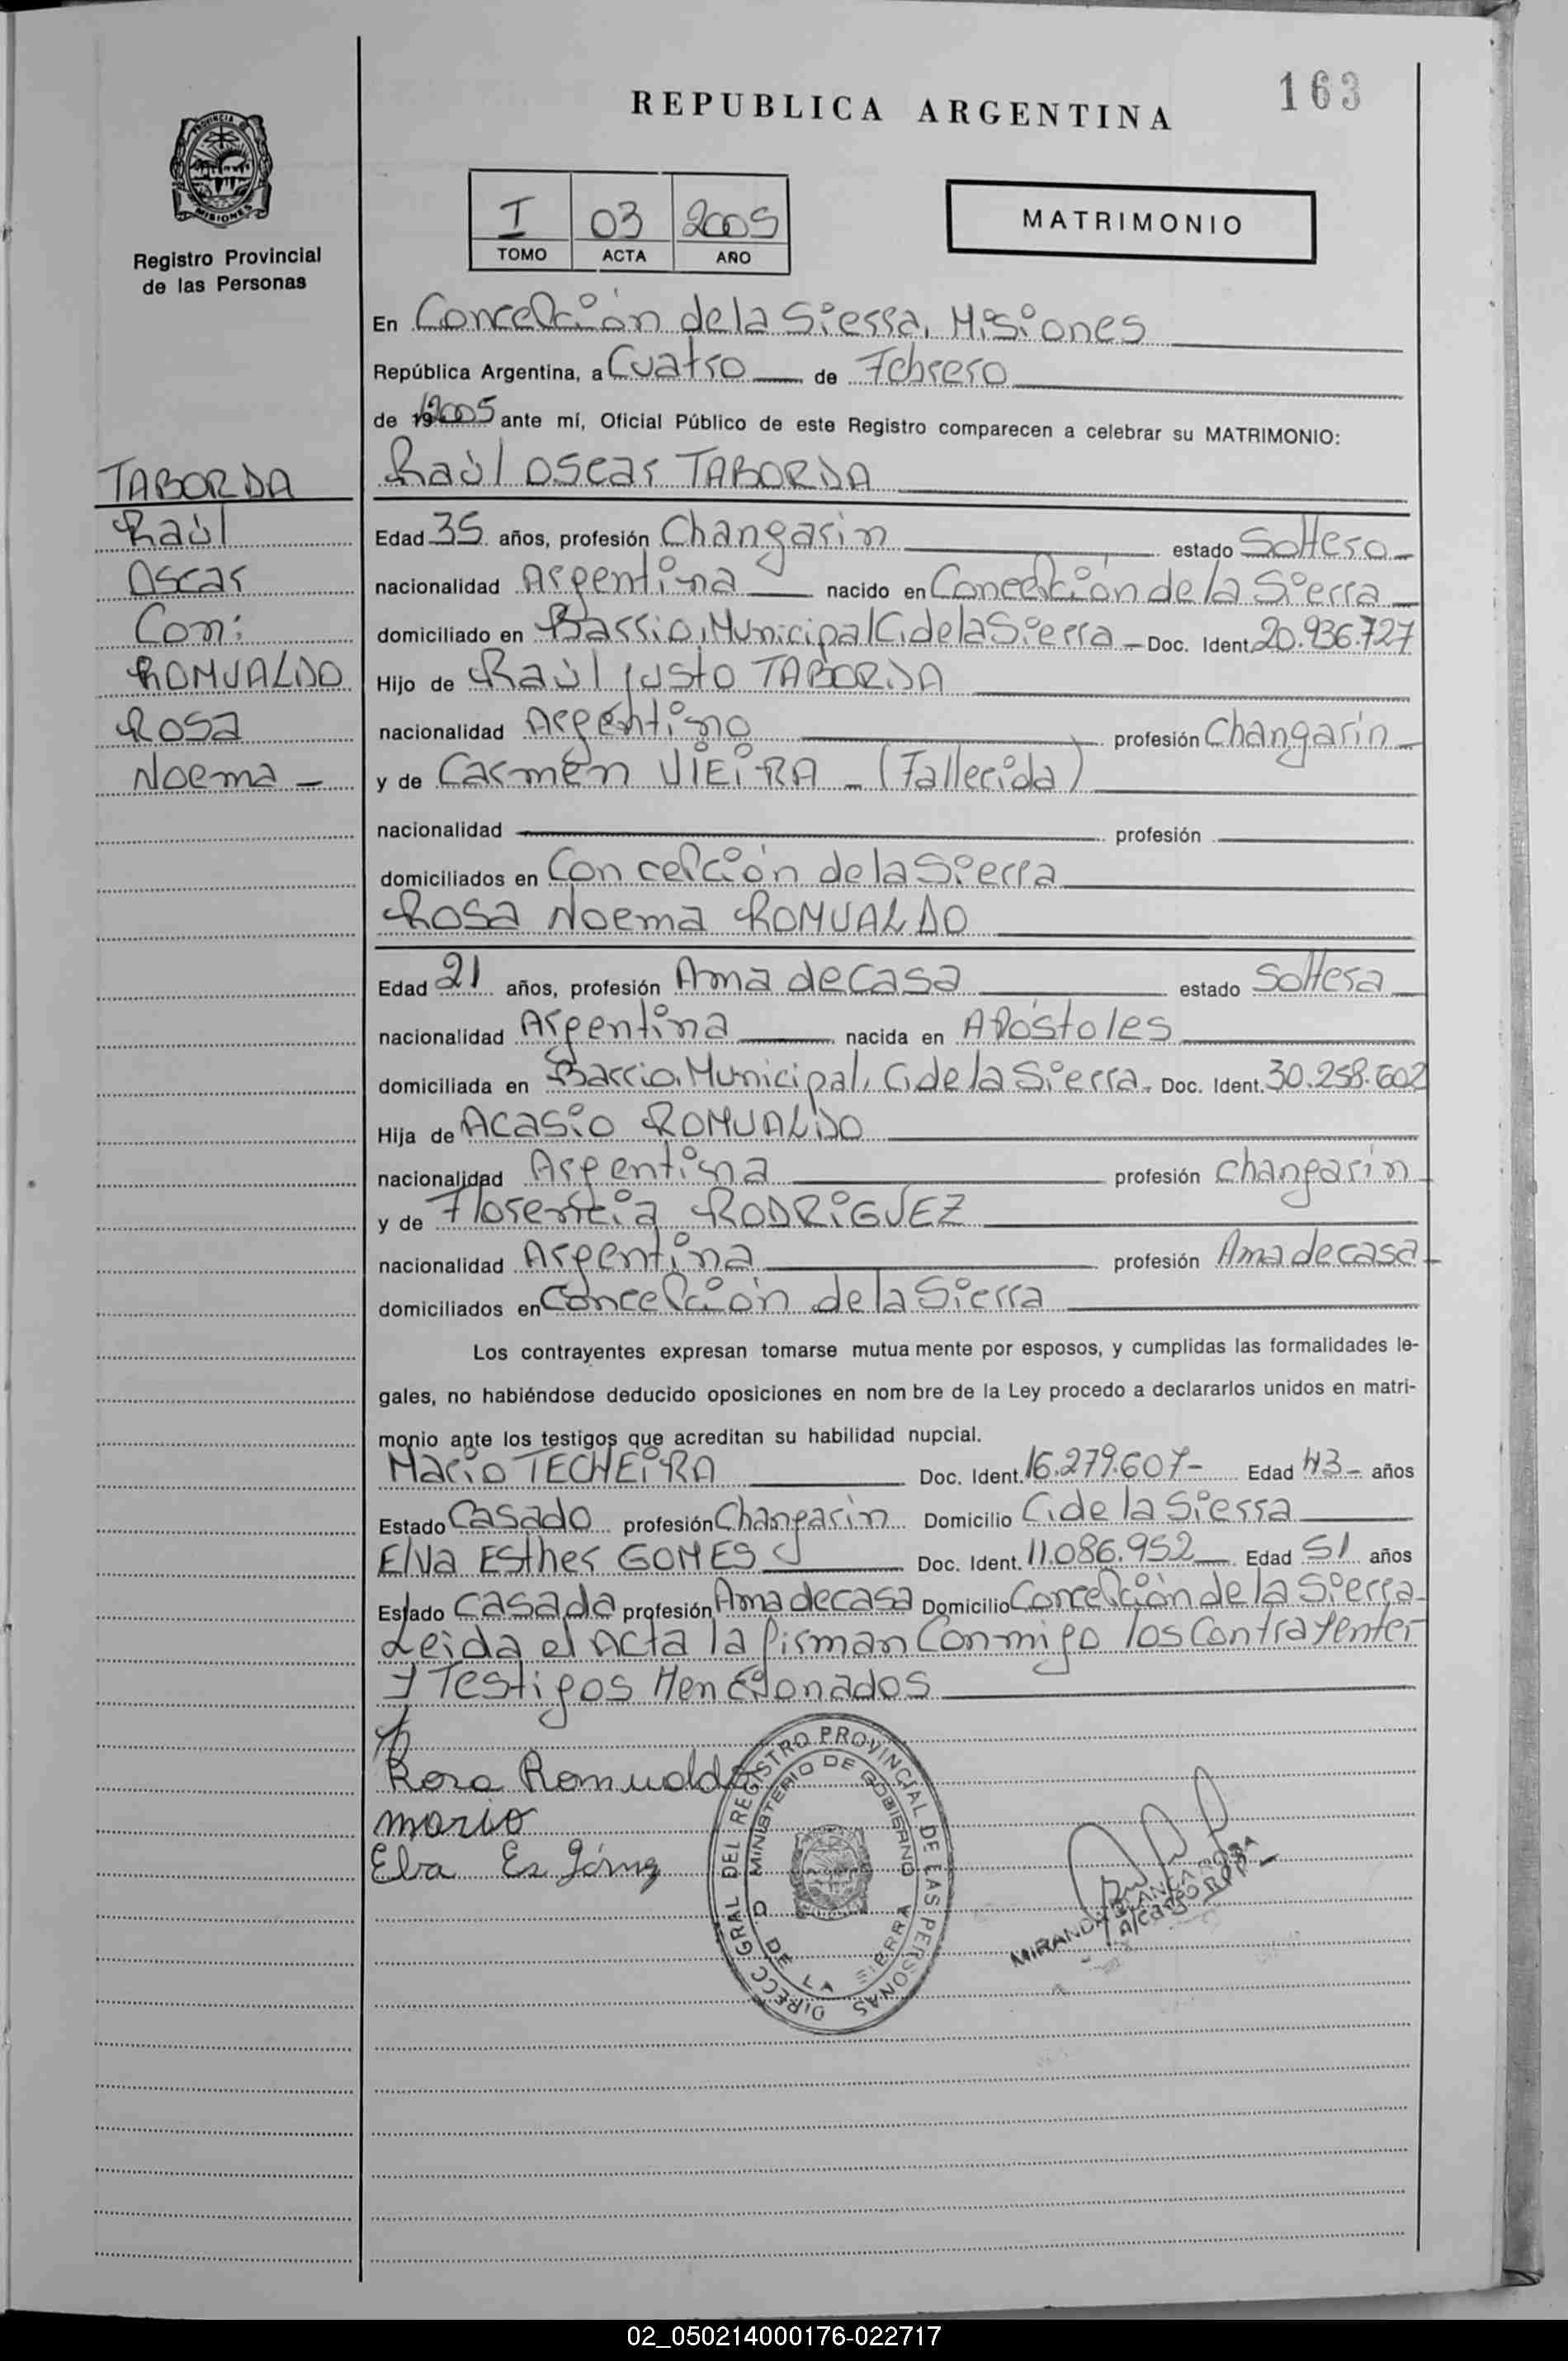 163
REPUBLICA ARGENTINA
PROVINCIA DE
MISIONES
Registro Provincial
de las Personas
I 03 2005
TOMO ACTA AÑO
MATRIMONIO
En Concepción de la Sierra, Misiones
República Argentina, a Cuatro de Febrero
de 19 2005 ante mí, Oficial Público de este Registro comparecen a celebrar su MATRIMONIO:
TABORDA
Raúl
Oscar
Con:
ROMUALDO
Rosa
Noema
Raúl Oscar TABORDA
Edad 35 años, profesión Changarin estado Soltero
nacionalidad Argentina nacido en Concepción de la Sierra
domiciliado en Barrio, Municipal C. de la Sierra Doc. Ident. 20.936.727
Hijo de Raúl justo TABORDA
nacionalidad Argentino profesión Changarin
y de Carmen VIEIRA - (Fallecida)
nacionalidad profesión
domiciliados en Concepción de la Sierra
Rosa Noema ROMUALDO
Edad 21 años, profesión Ama de casa estado Soltera
nacionalidad Argentina nacida en Apóstoles
domiciliada en Barrio, Municipal, C. de la Sierra. Doc. Ident. 30.258.602
Hija de Acasio ROMUALDO
nacionalidad Argentina profesión changarin
y de Florencia RODRIGUEZ
nacionalidad Argentina profesión Ama de casa
domiciliados en Concepción de la Sierra
Los contrayentes expresan tomarse mutua mente por esposos, y cumplidas las formalidades le-
gales, no habiéndose deducido oposiciones en nom bre de la Ley procedo a declararlos unidos en matri-
monio ante los testigos que acreditan su habilidad nupcial.
Mario TECHEIRA Doc. Ident. 16.279.607- Edad 43- años
Estado Casado profesión Changarin Domicilio C. de la Sierra
Elva Esther GOMES Doc. Ident. 11.086.952 Edad 51 años
Estado Casada profesión Ama de casa Domicilio Concepción de la Sierra
Leida el Acta la firman Conmigo los Contrayentes
y Testigos Mencionados
Rosa Romualdo
mario
Elva Es Gómez
DIRECC GRAL DEL REGISTRO PROVINCIAL DE LAS PERSONAS
MINISTERIO DE GOBIERNO
DE LA SIERRA
MIRANDA BLANCA ROSA
A/cargo RPP
02_050214000176-022717